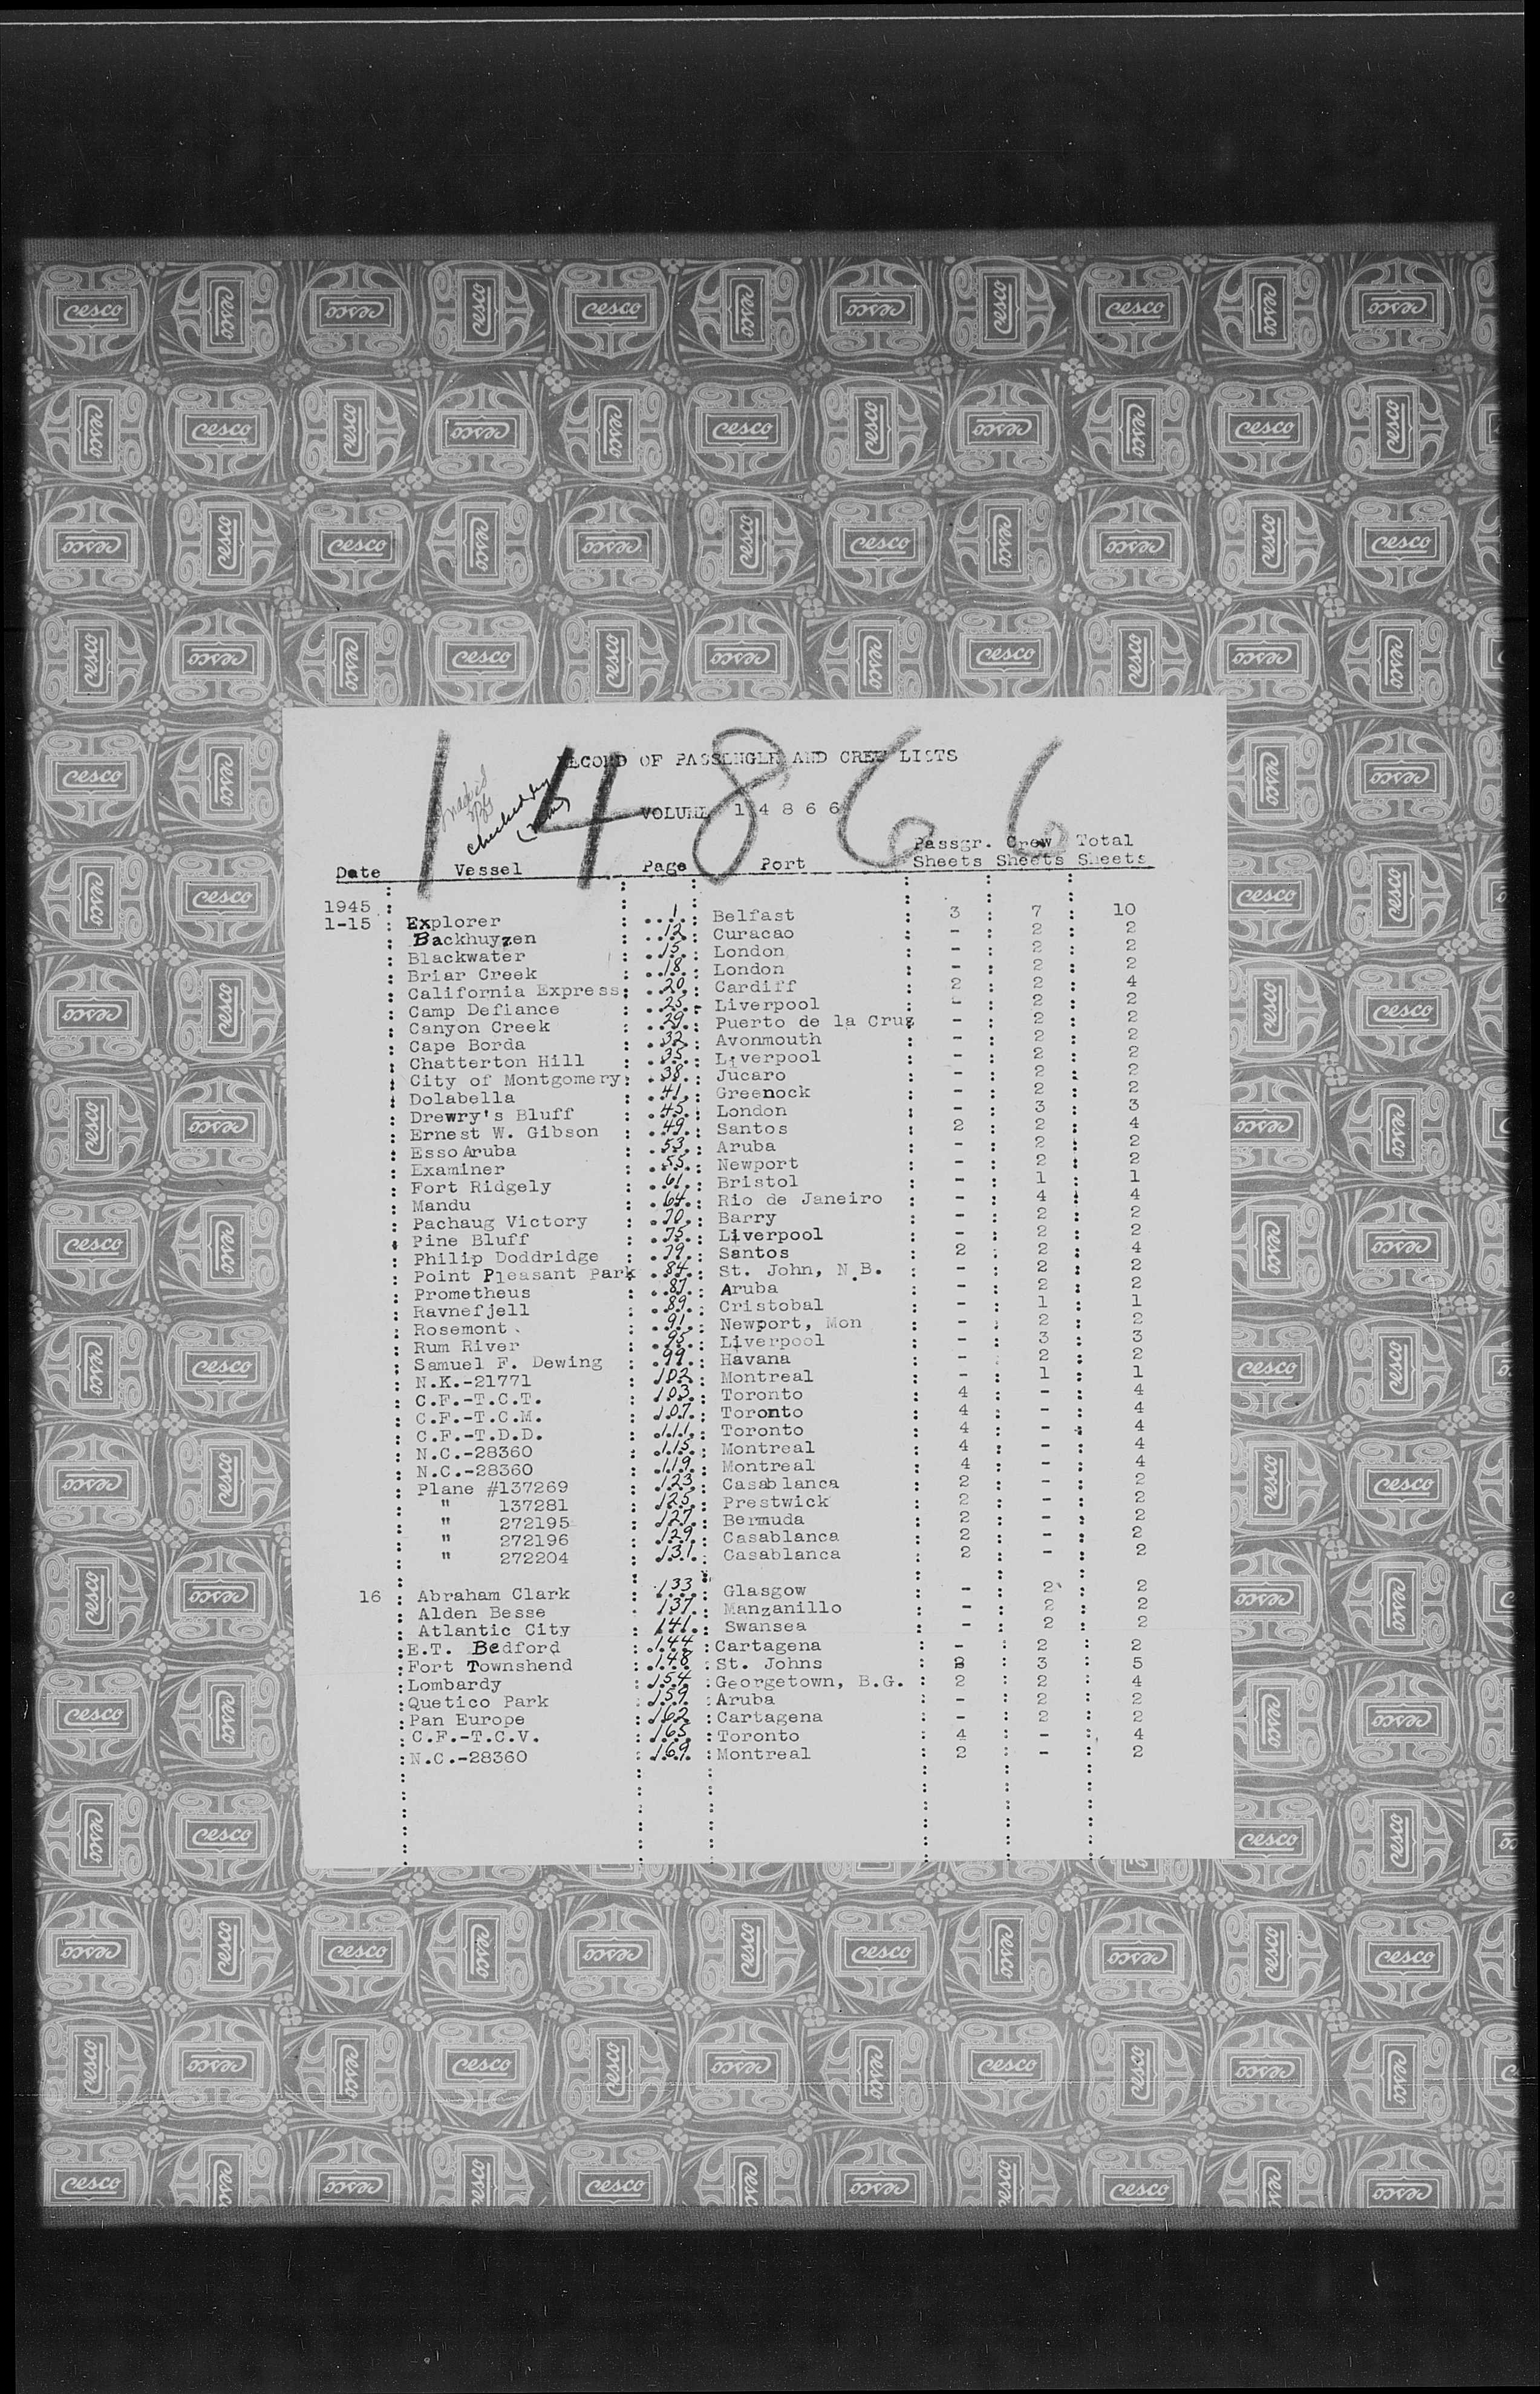 14866
RECORD OF PASSENGER AND CREW LISTS
VOLUME 1 4 8 6 6
checked by
Date Vessel Page Port Passgr. Sheets Crew Sheets Total Sheets
1945
1-15 Explorer 1 Belfast 3 7 10
Backhuyzen 12 Curacao - 2 2
Blackwater 15 London - 2 2
Briar Creek 18 London - 2 2
California Express 20 Cardiff 2 2 4
Camp Defiance 25 Liverpool - 2 2
Canyon Creek 29 Puerto de la Cruz - 2 2
Cape Borda 32 Avonmouth - 2 2
Chatterton Hill 35 Liverpool - 2 2
City of Montgomery 38 Jucaro - 2 2
Dolabella 41 Greenock - 2 2
Drewry's Bluff 45 London - 3 3
Ernest W. Gibson 49 Santos 2 2 4
Esso Aruba 53 Aruba - 2 2
Examiner 55 Newport - 2 2
Fort Ridgely 61 Bristol - 1 1
Mandu 64 Rio de Janeiro - 4 4
Pachaug Victory 70 Barry - 2 2
Pine Bluff 75 Liverpool - 2 2
Philip Doddridge 79 Santos 2 2 4
Point Pleasant Park 84 St. John, N.B. - 2 2
Prometheus 87 Aruba - 2 2
Ravnefjell 89 Cristobal - 1 1
Rosemont 91 Newport, Mon - 2 2
Rum River 95 Liverpool - 3 3
Samuel F. Dewing 99 Havana - 2 2
N.K.-21771 102 Montreal - 1 1
C.F.-T.C.T. 103 Toronto 4 - 4
C.F.-T.C.M. 107 Toronto 4 - 4
C.F.-T.D.D. 111 Toronto 4 - 4
N.C.-28360 115 Montreal 4 - 4
N.C.-28360 119 Montreal 4 - 4
Plane #137269 123 Casablanca 2 - 2
" 137281 125 Prestwick 2 - 2
" 272195 127 Bermuda 2 - 2
" 272196 129 Casablanca 2 - 2
" 272204 131 Casablanca 2 - 2
16 Abraham Clark 133 Glasgow - 2 2
Alden Besse 137 Manzanillo - 2 2
Atlantic City 141 Swansea - 2 2
E.T. Bedford 144 Cartagena - 2 2
Fort Townshend 148 St. Johns 2 3 5
Lombardy 154 Georgetown, B.G. 2 2 4
Quetico Park 159 Aruba - 2 2
Pan Europe 162 Cartagena - 2 2
C.F.-T.C.V. 165 Toronto 4 - 4
N.C.-28360 169 Montreal 2 - 2
cesco